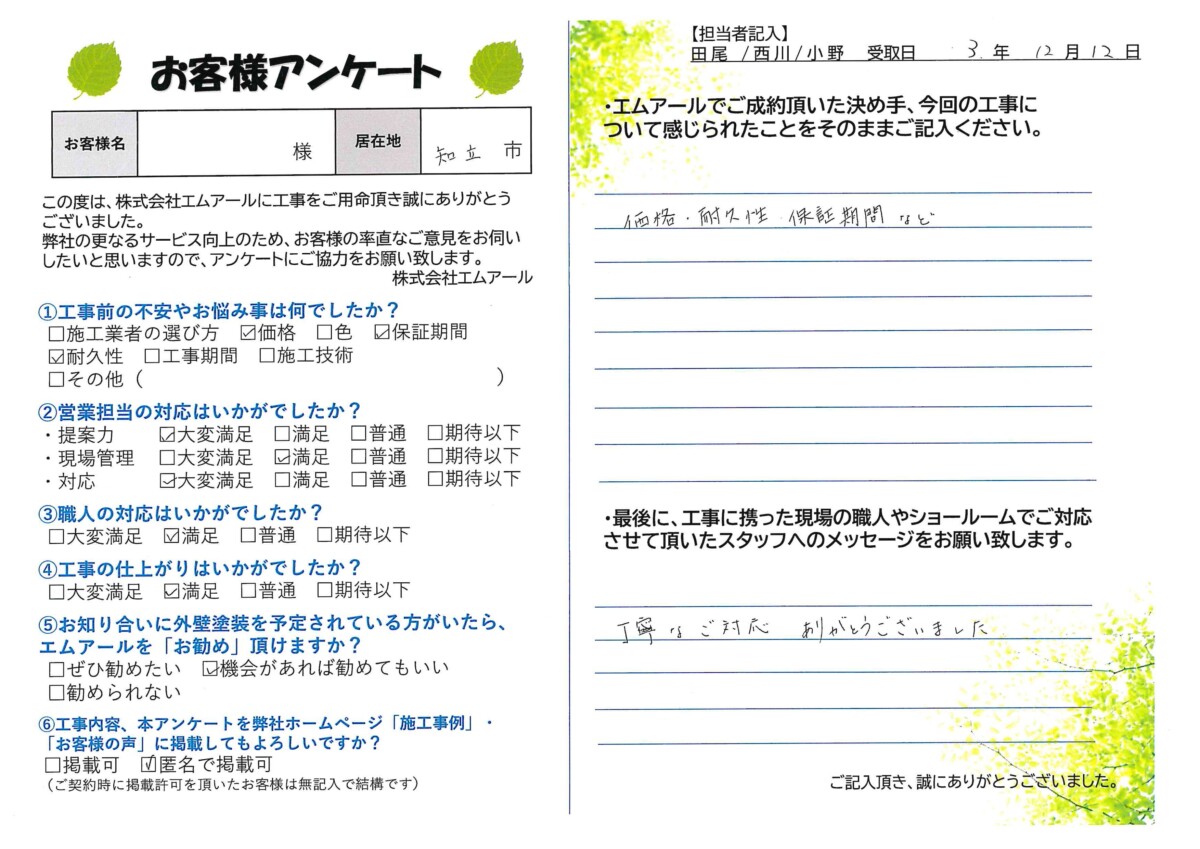 お客様アンケート
お客様名 様 居在地 知立 市
この度は、株式会社エムアールに工事をご用命頂き誠にありがとう
ございました。
弊社の更なるサービス向上のため、お客様の率直なご意見をお伺い
したいと思いますので、アンケートにご協力をお願い致します。
株式会社エムアール
①工事前の不安やお悩み事は何でしたか？
☐施工業者の選び方 ☑価格 ☐色 ☑保証期間
☑耐久性 ☐工事期間 ☐施工技術
☐その他（ ）
②営業担当の対応はいかがでしたか？
・提案力 ☑大変満足 ☐満足 ☐普通 ☐期待以下
・現場管理 ☐大変満足 ☑満足 ☐普通 ☐期待以下
・対応 ☑大変満足 ☐満足 ☐普通 ☐期待以下
③職人の対応はいかがでしたか？
☐大変満足 ☑満足 ☐普通 ☐期待以下
④工事の仕上がりはいかがでしたか？
☐大変満足 ☑満足 ☐普通 ☐期待以下
⑤お知り合いに外壁塗装を予定されている方がいたら、
エムアールを「お勧め」頂けますか？
☐ぜひ勧めたい ☑機会があれば勧めてもいい
☐勧められない
⑥工事内容、本アンケートを弊社ホームページ「施工事例」・
「お客様の声」に掲載してもよろしいですか？
☐掲載可 ☑匿名で掲載可
（ご契約時に掲載許可を頂いたお客様は無記入で結構です）
【担当者記入】
田尾 /西川/小野 受取日 3 年 12 月 12 日
・エムアールでご成約頂いた決め手、今回の工事に
ついて感じられたことをそのままご記入ください。
価格・耐久性・保証期間 など
・最後に、工事に携った現場の職人やショールームでご対応
させて頂いたスタッフへのメッセージをお願い致します。
丁寧なご対応 ありがとうございました
ご記入頂き、誠にありがとうございました。